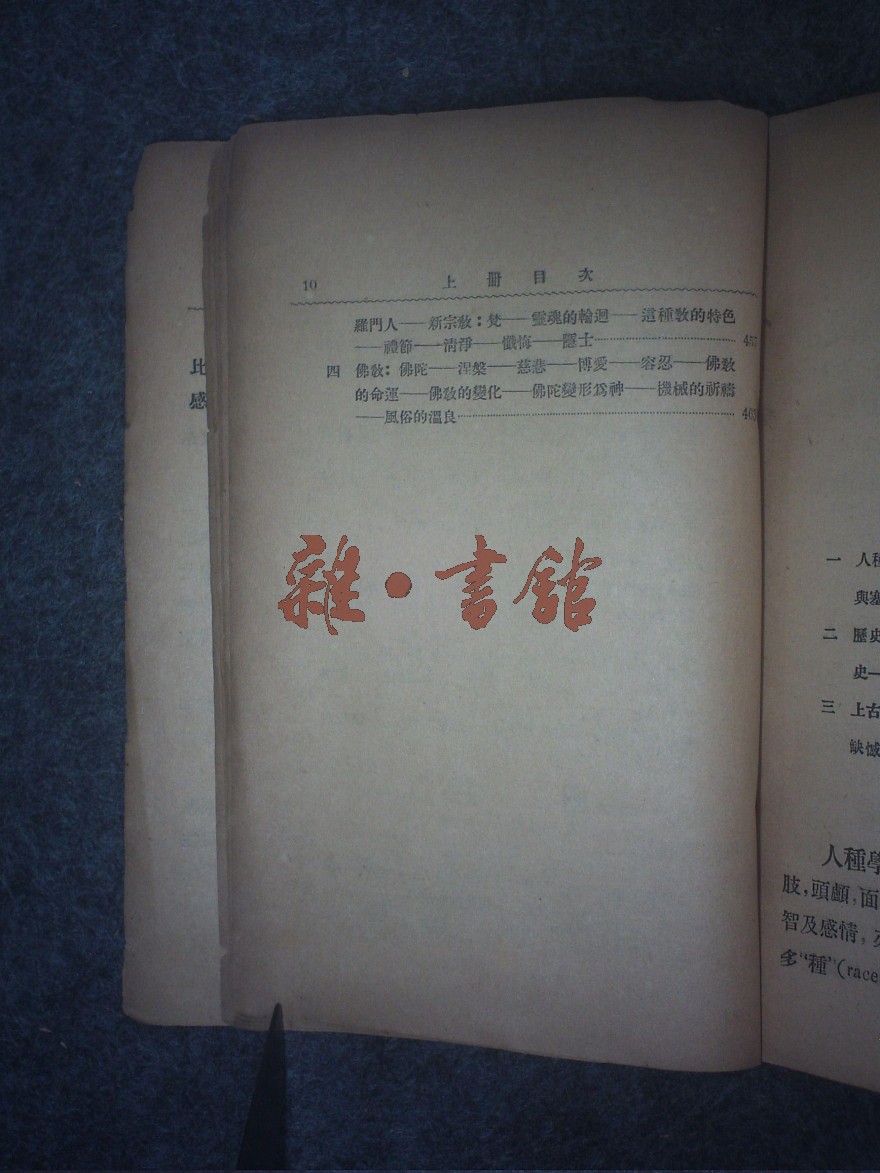 10 上冊目次
羅門人——新宗教：梵——靈魂的輪迴——這種教的特色
——禮節——清淨——懺悔——隱士
四 佛教：佛陀——涅槃——慈悲——博愛——容忍——佛教
的命運——佛教的變化——佛陀變形爲神——機械的祈禱
——風俗的溫良
雜·書館
比
感
一 人種
與塞
二 歷史
史—
三 上古
缺憾
人種學
肢，頭顱，面
智及感情，
多“種”(race